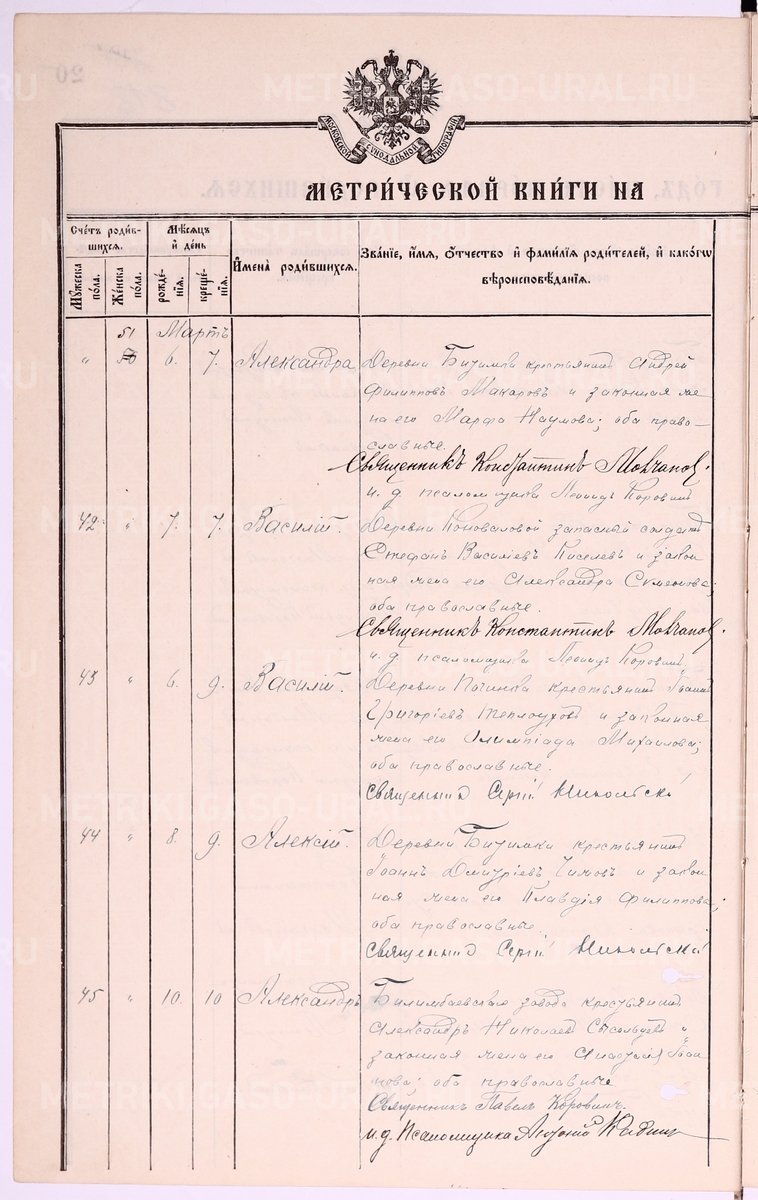 20
МОСКОВСКОЙ СѴНОДАЛЬНОЙ ТИПОГРАФІИ
МЕТРИ́ЧЕСКОЙ КНИ́ГИ НА
Сче́тъ роди́вшихся.
Мꙋ́жеска по́ла.
Же́нска по́ла.
Мѣ́сѧцъ и҆ де́нь
рожде́нїѧ.
креще́нїѧ.
И҆мена̀ роди́вшихся.
Зва́нїе, и҆́мѧ, ѻ҆́тчество и҆ фами́лїѧ роди́телей, и҆ како́гѡ
вѣроисповѣ́данїѧ.
51 Мартъ
" 50 6. 7. Александра Деревни Бизимки крестьянинъ Андрей
Филипповъ Макаровъ и законная же
на его Марфа Наумова; оба право-
славные.
Священникъ Константинъ Молчанов.
и. д. псаломщика Леонидъ Коровинъ
42 " 7. 7. Василій. Деревни Коноваловой запасный солдатъ
Стефанъ Василіевъ Киселевъ и закон
ная жена его Александра Симеонова;
оба православные.
Священникъ Константинъ Молчанов.
и. д. псаломщика Леонидъ Коровинъ
43 " 6. 9. Василій. Деревни Починка крестьянинъ Іоаннъ
Григоріевъ Теплоуховъ и законная
жена его Олимпіада Михаилова;
оба православные.
Священникъ Сергій Никольскій
44 " 8. 9. Алексій. Деревни Бизимки крестьянинъ
Іоаннъ Димитріевъ и закон
ная жена его Клавдія Филиппова;
оба православные.
Священникъ Сергій Никольскій
45 " 10. 10 Александръ Билимбаевскаго завода крестьянинъ
Александръ Николаевъ и
законная жена его Анастасія Іоан
нова; оба православные
Священникъ Павелъ Коровинъ.
и. д. Псаломщика
METRIKI.GASO-URAL.RU